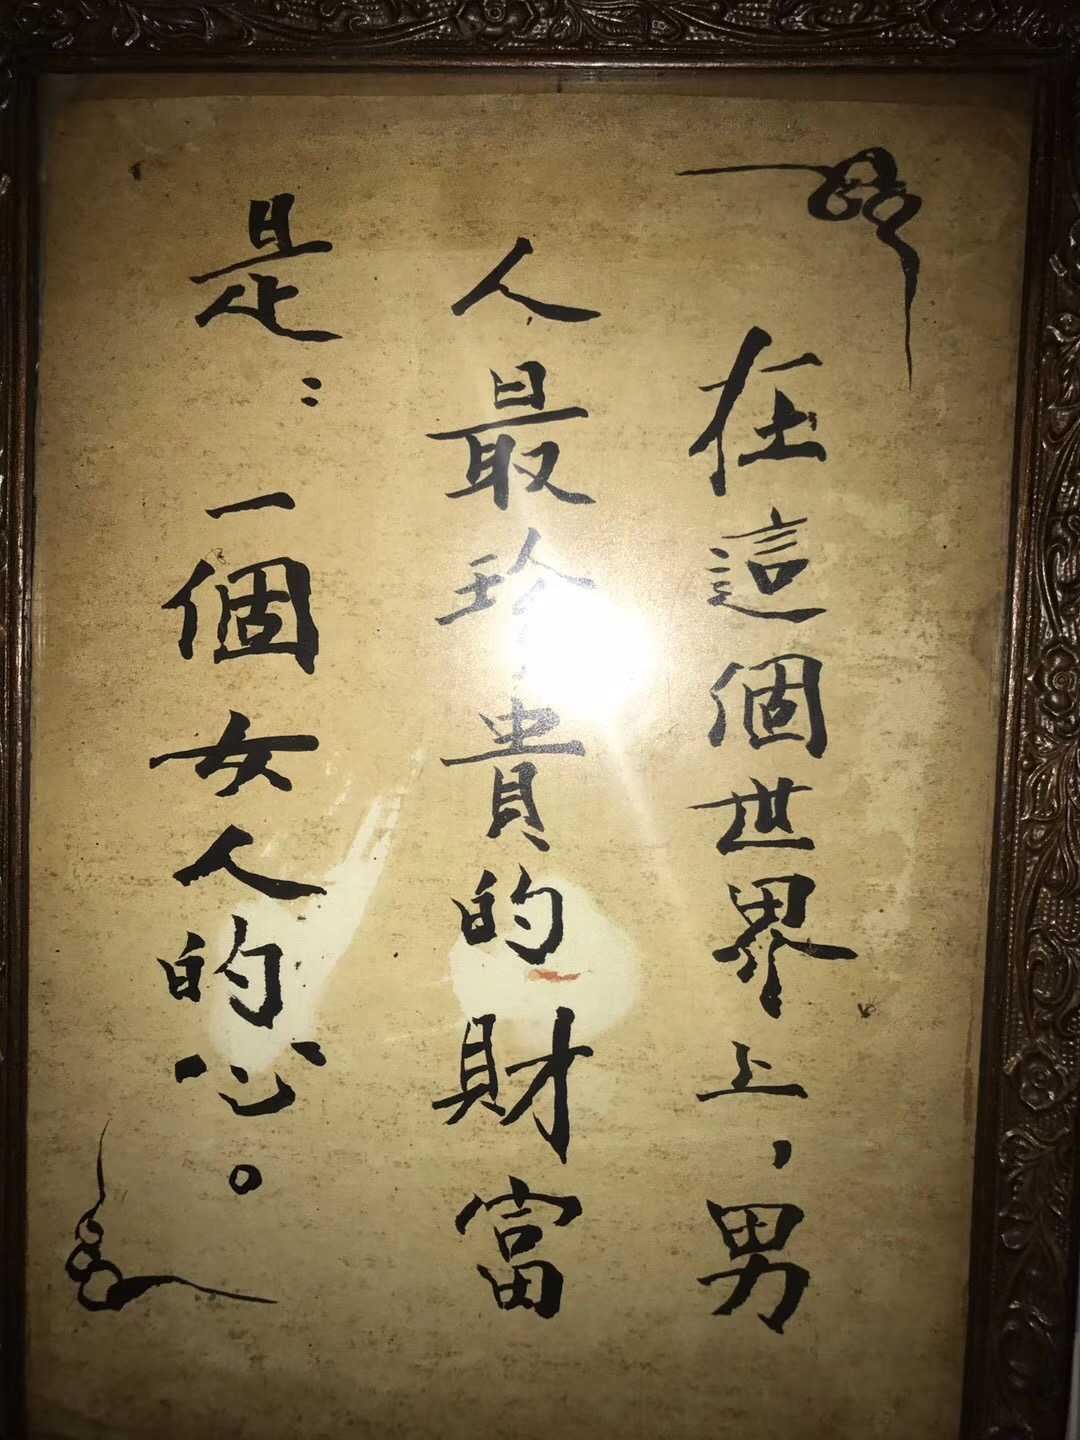 在這個世界上，男
人最珍貴的財富
是：一個女人的心。